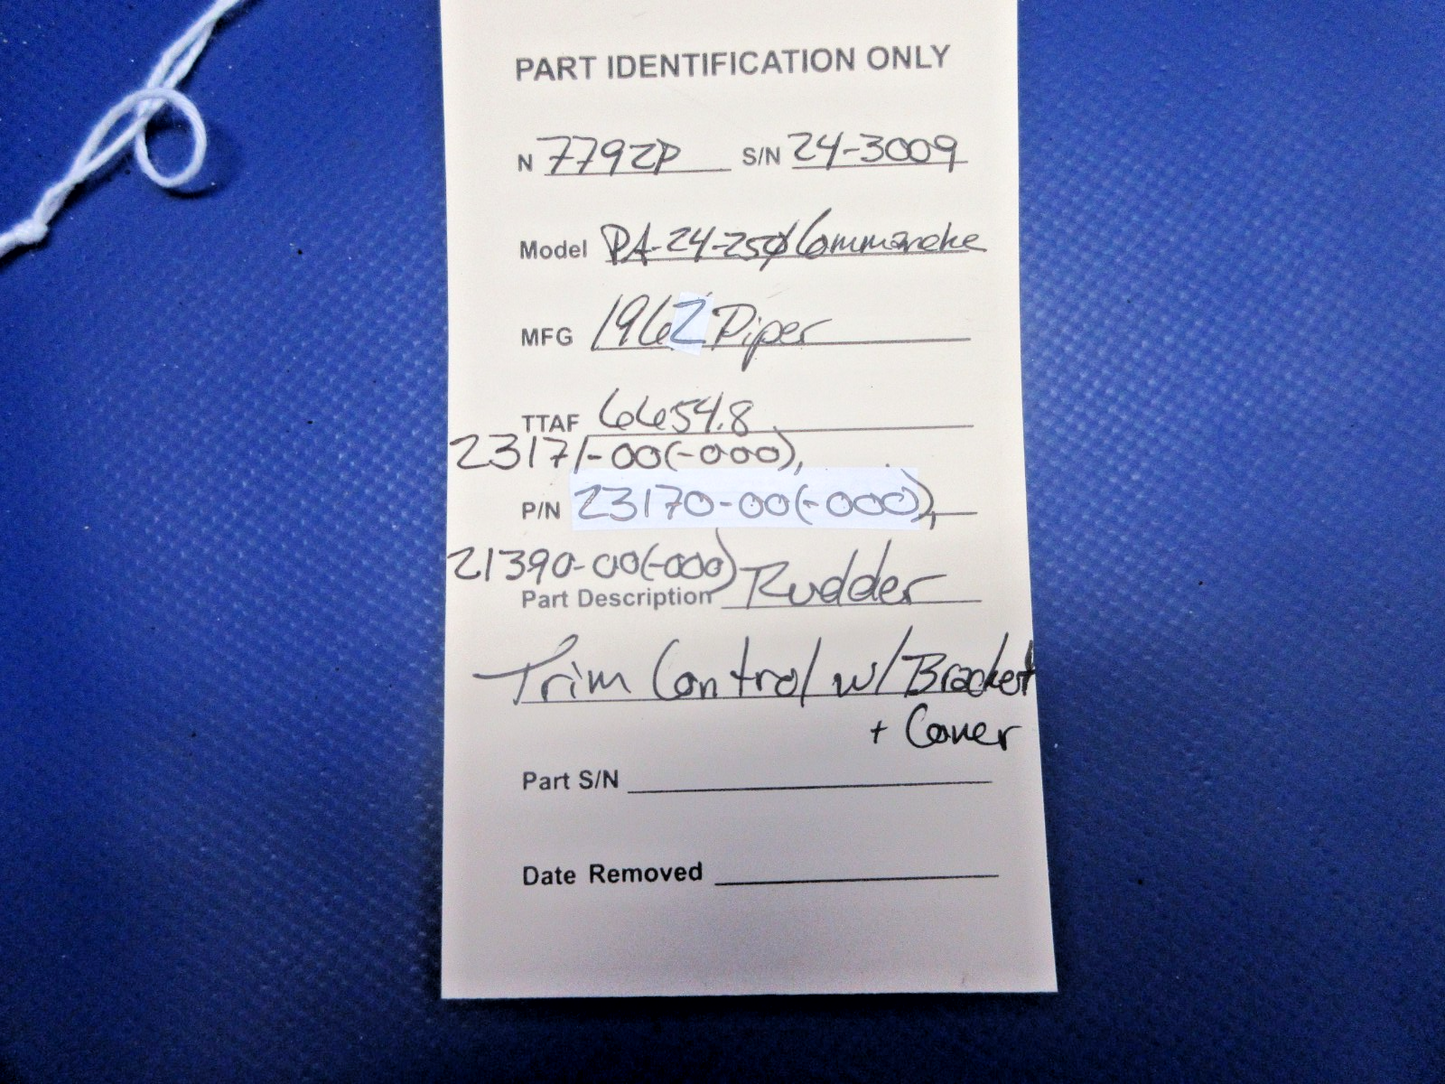 PART IDENTIFICATION ONLY
N 7792P S/N 24-3009
Model PA-24-250 Commanche
MFG 1962 Piper
TTAF 6654.8
23171-00(-000),
P/N 23170-00(-000),
21390-00(-000)
Part Description Rudder
Trim Control w/ Bracket
+ Cover
Part S/N
Date Removed